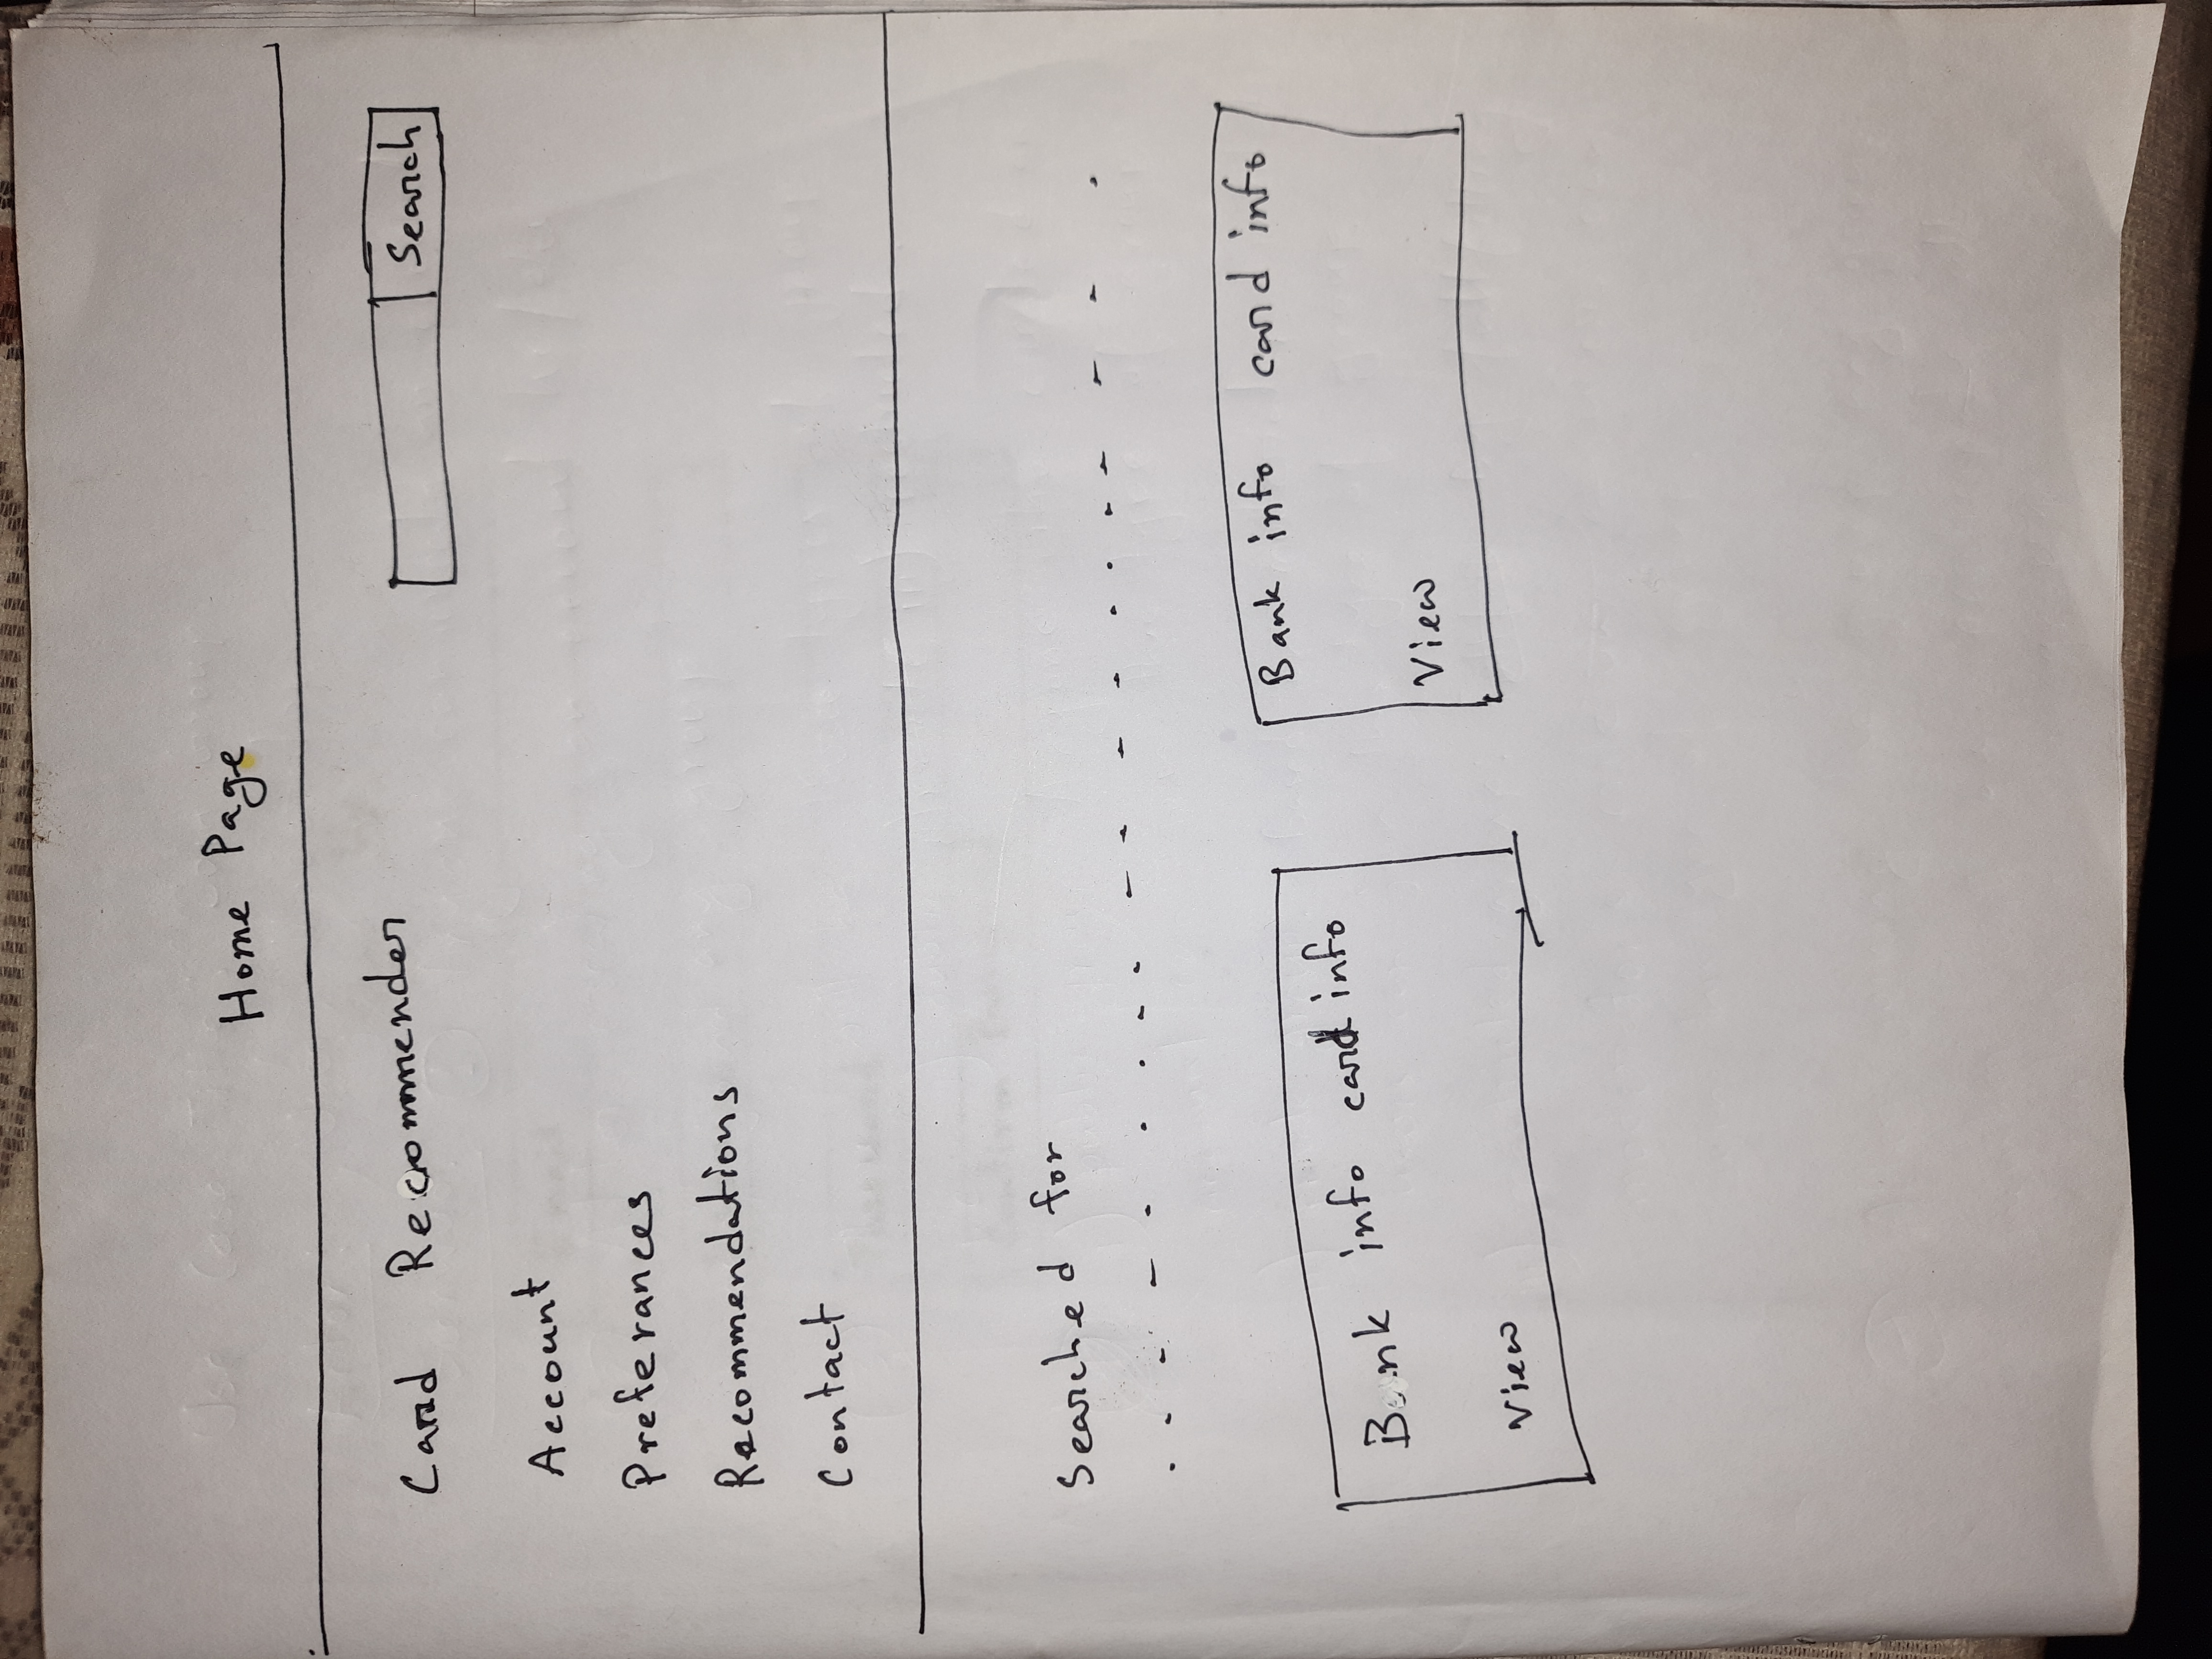 Home Page
Card Recommender Search
Account
Preferances
Recommendations
Contact
Searched for
Bank info card info
Bank info card info
View
View